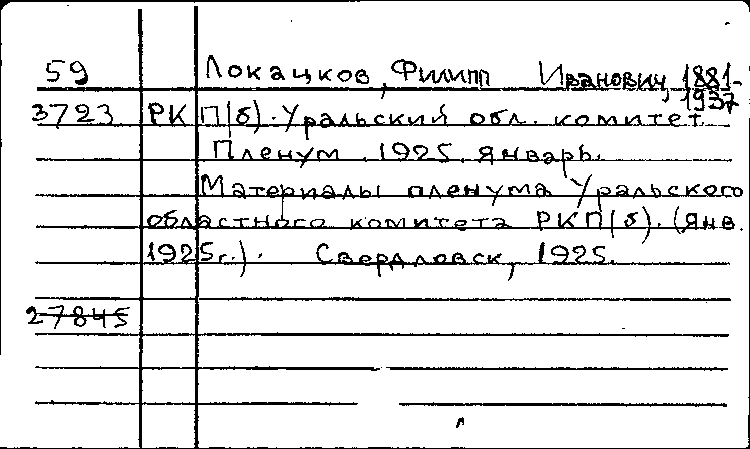 59 Локацков, Филипп Иванович, 1881-
1937
3723 РКП(б). Уральский обл. комитет
Пленум. 1925. январь.
Материалы пленума Уральского
областного комитета РКП(б). (янв.
1925г.). Свердловск, 1925.
27845